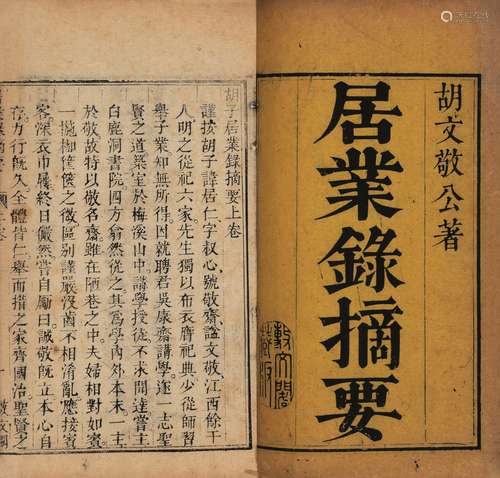 胡文敬公著
居業錄摘要
敷文閣
藏板
胡子居業錄摘要上卷
謹按胡子諱居仁字叔心號敬齋謚文敬江西餘干
人明之從祀六家先生獨以布衣膺祀典少從師習
舉子業知無所得因就聘君吳康齋講學遂一志聖
賢之道築室於梅溪山中講學授徒不求聞達嘗主
白鹿洞書院四方翕然從之其爲學內外本末一主
於敬故特以敬名齋雖在陋巷之中夫婦相對如賓
一櫳枷篋篋之微區別謹嚴沒齒不相淆亂應接賓
客深衣巾屨終日儼然嘗自勵曰誠敬旣立本心自
存力行旣久全體皆仁舉而措之家齊國治聖賢之
一 敷文閣